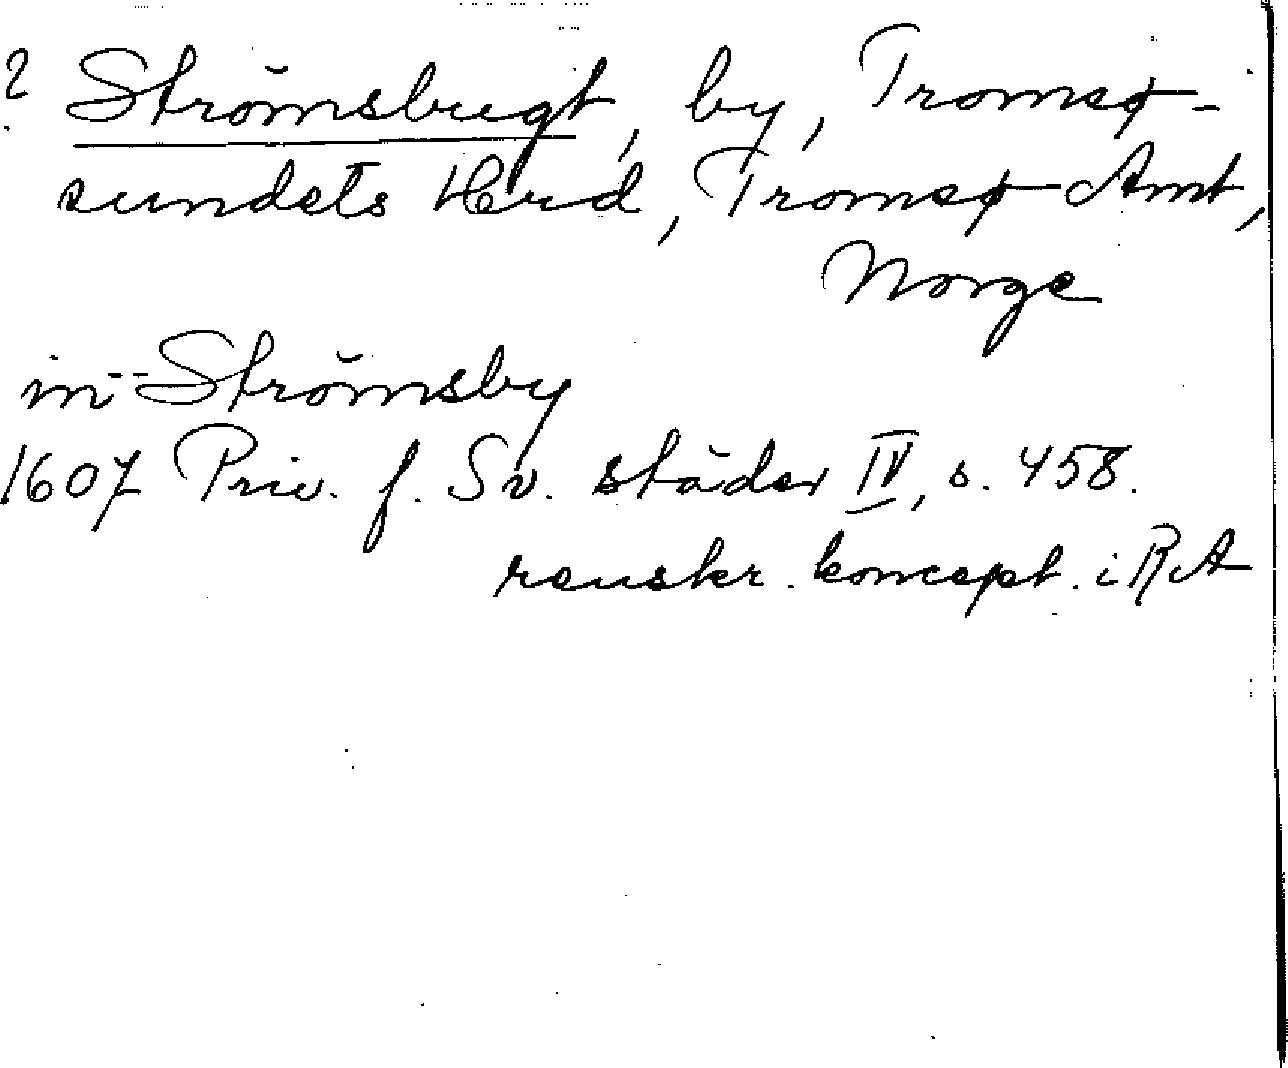 ? Strömsbugt, by, Tromsø-
sundets Herd, Tromsø Amt,
Norge
in -- Strömsby
1607 Priv. f. Sv. städer IV, s. 458.
renskr. koncept. i RA